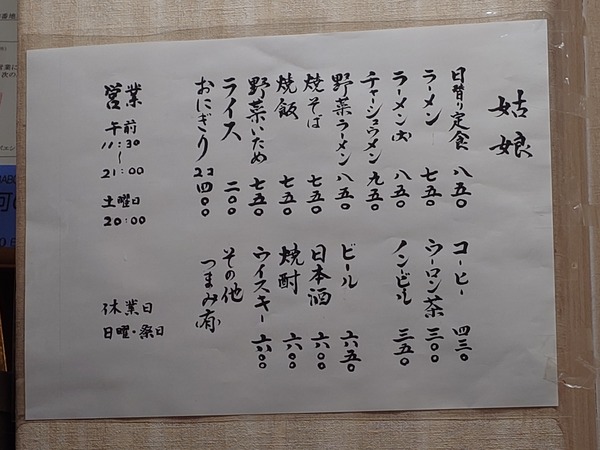 姑娘
日替り定食 八五〇
ラーメン 七五〇
ラーメン(大) 八五〇
チャーシュウメン 九五〇
野菜ラーメン 八五〇
焼そば 七五〇
焼飯 七五〇
野菜いため 七五〇
ライス 二〇〇
おにぎり 2コ 四〇〇
コーヒー 四三〇
ウーロン茶 三〇〇
ノンビール 三五〇
ビール 六五〇
日本酒 六〇〇
焼酎 六〇〇
ウイスキー 六〇〇
その他
つまみ有
営業
午前
11:30
〜
21:00
土曜日
20:00
休業日
日曜・祭日